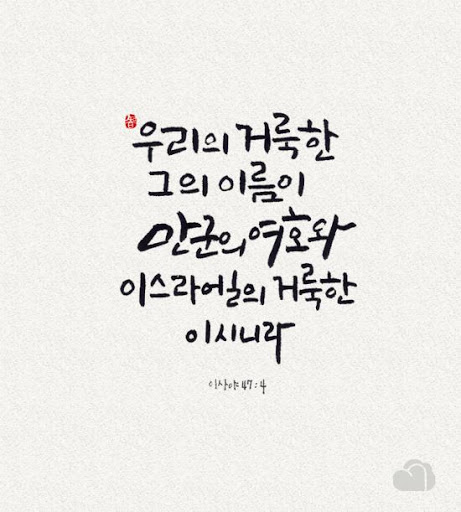 우리의 거룩한
그의 이름이
만군의 여호와
이스라엘의 거룩한
이시니라
이사야 47:4